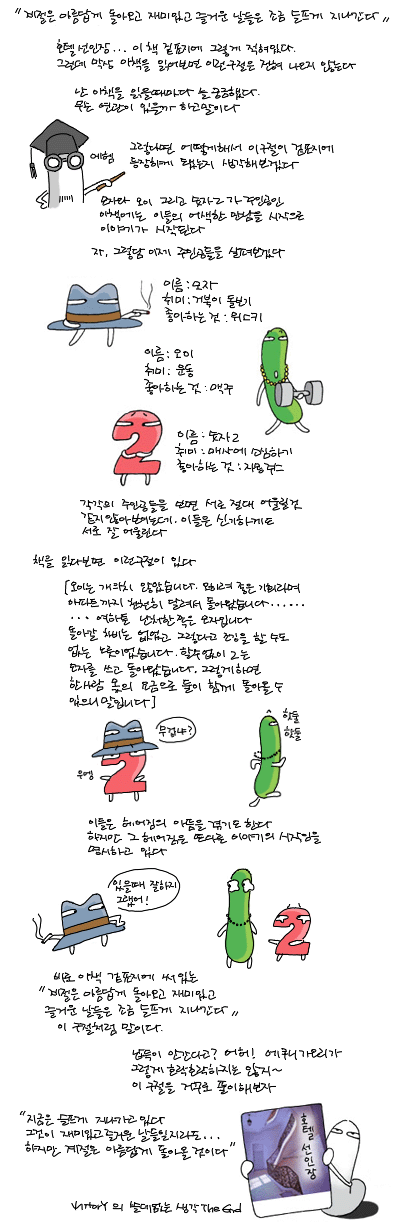 "계절은 아름답게 돌아오고 재미있고 즐거운 날들은 조금 슬프게 지나간다"
호텔 선인장... 이 책 겉표지에 그렇게 적혀있다.
그런데 막상 이책을 읽어보면 이런구절은 전혀 나오지 않는다
난 이책을 읽을때마다 늘 궁금했다.
무슨 연관이 있을까 하고말이다
에헴
그렇다면 어떻게해서 이구절이 겉표지에
등장하게 됐는지 생각해보겠다
모자와 오이 그리고 숫자2가 주인공인
이책에는 이들의 어색한 만남을 시작으로
이야기가 시작된다
자, 그럼담 이제 주인공들을 살펴보겠다
이름 : 모자
취미 : 거북이 돌보기
좋아하는 것 : 위스키
이름 : 오이
취미 : 운동
좋아하는 것 : 맥주
2
이름 : 숫자2
취미 : 매사에 소심하기
좋아하는 것 : 자몽쥬스
각각의 주인공들을 보면 서로 절대 어울릴것
같지않아보이는데, 이들은 신기하게도
서로 잘 어울린다
책을 읽다보면 이런구절이 있다
[오이는 개의치 않았습니다. 오히려 좋은 기회라며
아파트까지 천천히 달려서 돌아왔습니다......
... 여하튼 난처한쪽은 모자입니다
돌아갈 차비는 없었고 그렇다고 운동을 할 수도
없는 노릇이었습니다. 할수없이 2는
모자를 쓰고 돌아왔습니다. 그렇게하면
한사람 몫의 요금으로 둘이 함께 돌아올 수
있으니 말입니다]
무겁냐?
우엥
2
헛둘
헛둘
이들은 헤어짐의 아픔을 겪기도 한다
하지만 그 헤어짐은 또다른 이야기의 시작임을
명시하고 있다
있을때 잘하지
그랬어!
2
바로 이책 겉표지에 써있는
"계절은 아름답게 돌아오고 재미있고
즐거운 날들은 조금 슬프게 지나간다"
이 구절처럼 말이다.
납득이 안간다고? 어허! 에쿠니 가오리가
그렇게 호락호락하지는 않지~
이 구절을 거꾸로 풀이해보자
"지금은 슬프게 지나가고 있다
그것이 재미있고 즐거운 날들일지라도...
하지만 계절은 아름답게 돌아올 것이다"
호텔 선인장
의 쓸데없는 생각 The End